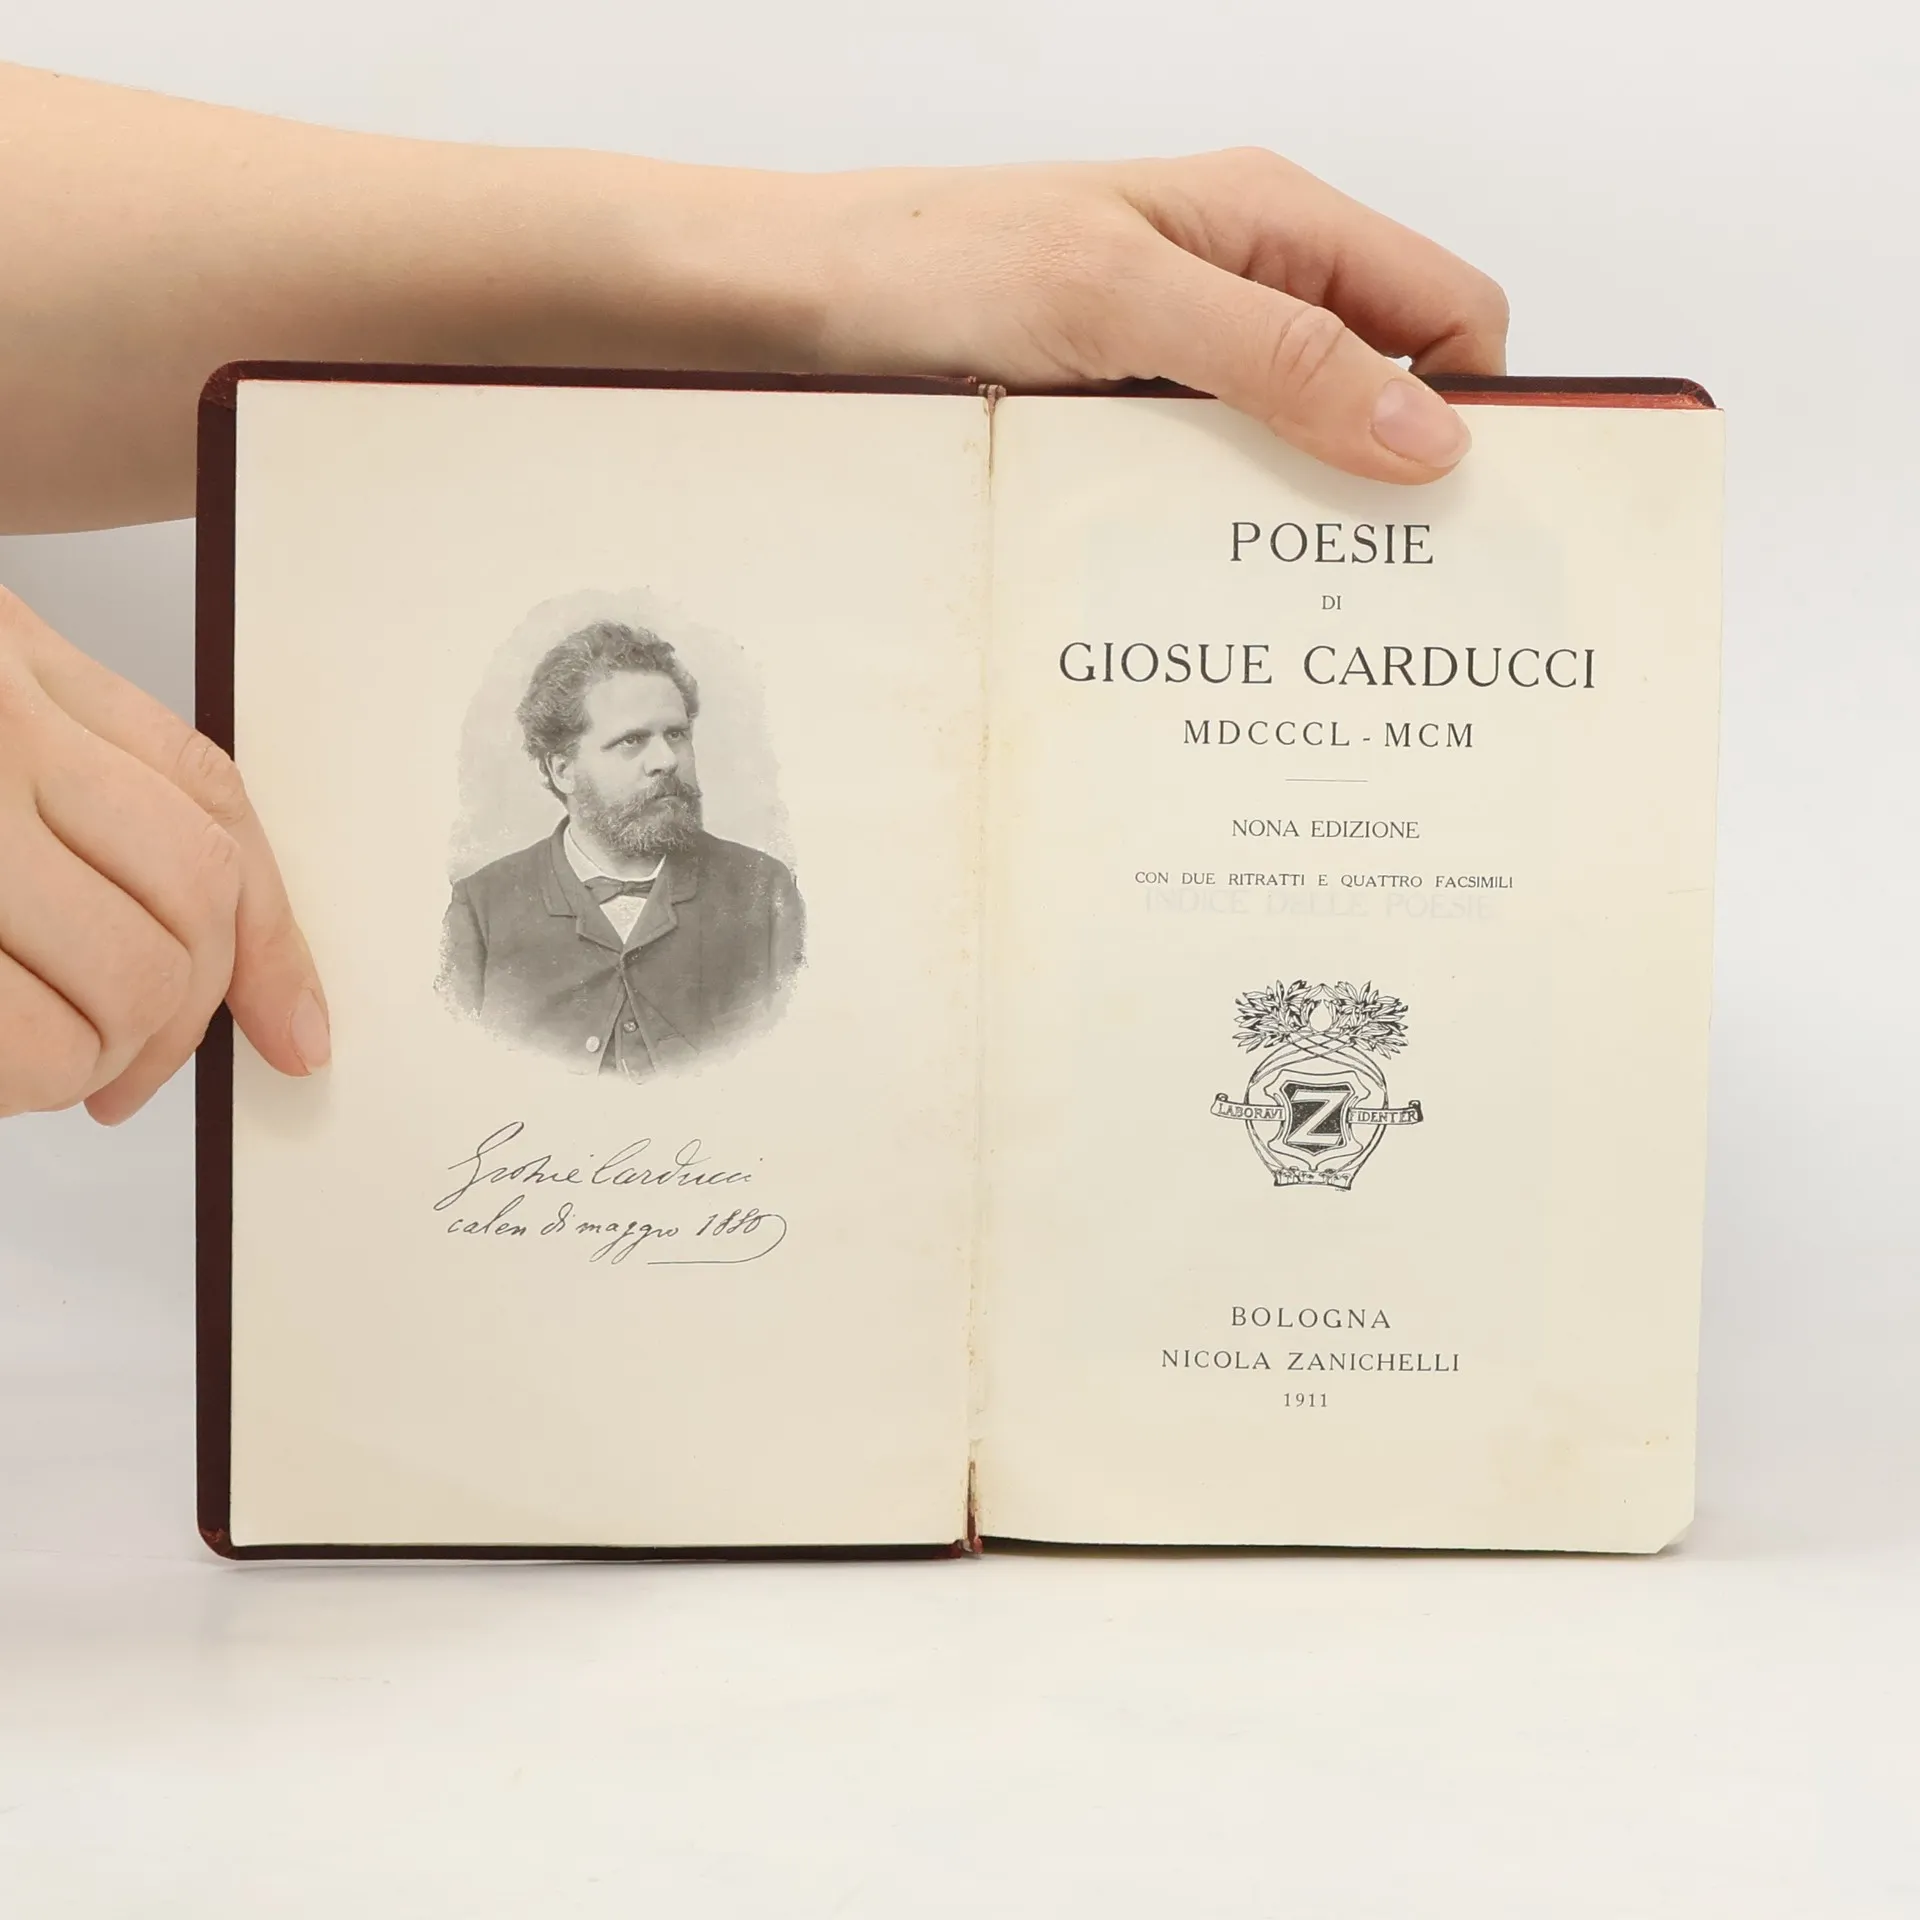 Giosuè Carducci
calen di maggio 1880
POESIE
DI
GIOSUE CARDUCCI
MDCCCL - MCM
NONA EDIZIONE
CON DUE RITRATTI E QUATTRO FACSIMILI
INDICE DELLE POESIE
LABORAVI Z FIDENTER
BOLOGNA
NICOLA ZANICHELLI
1911